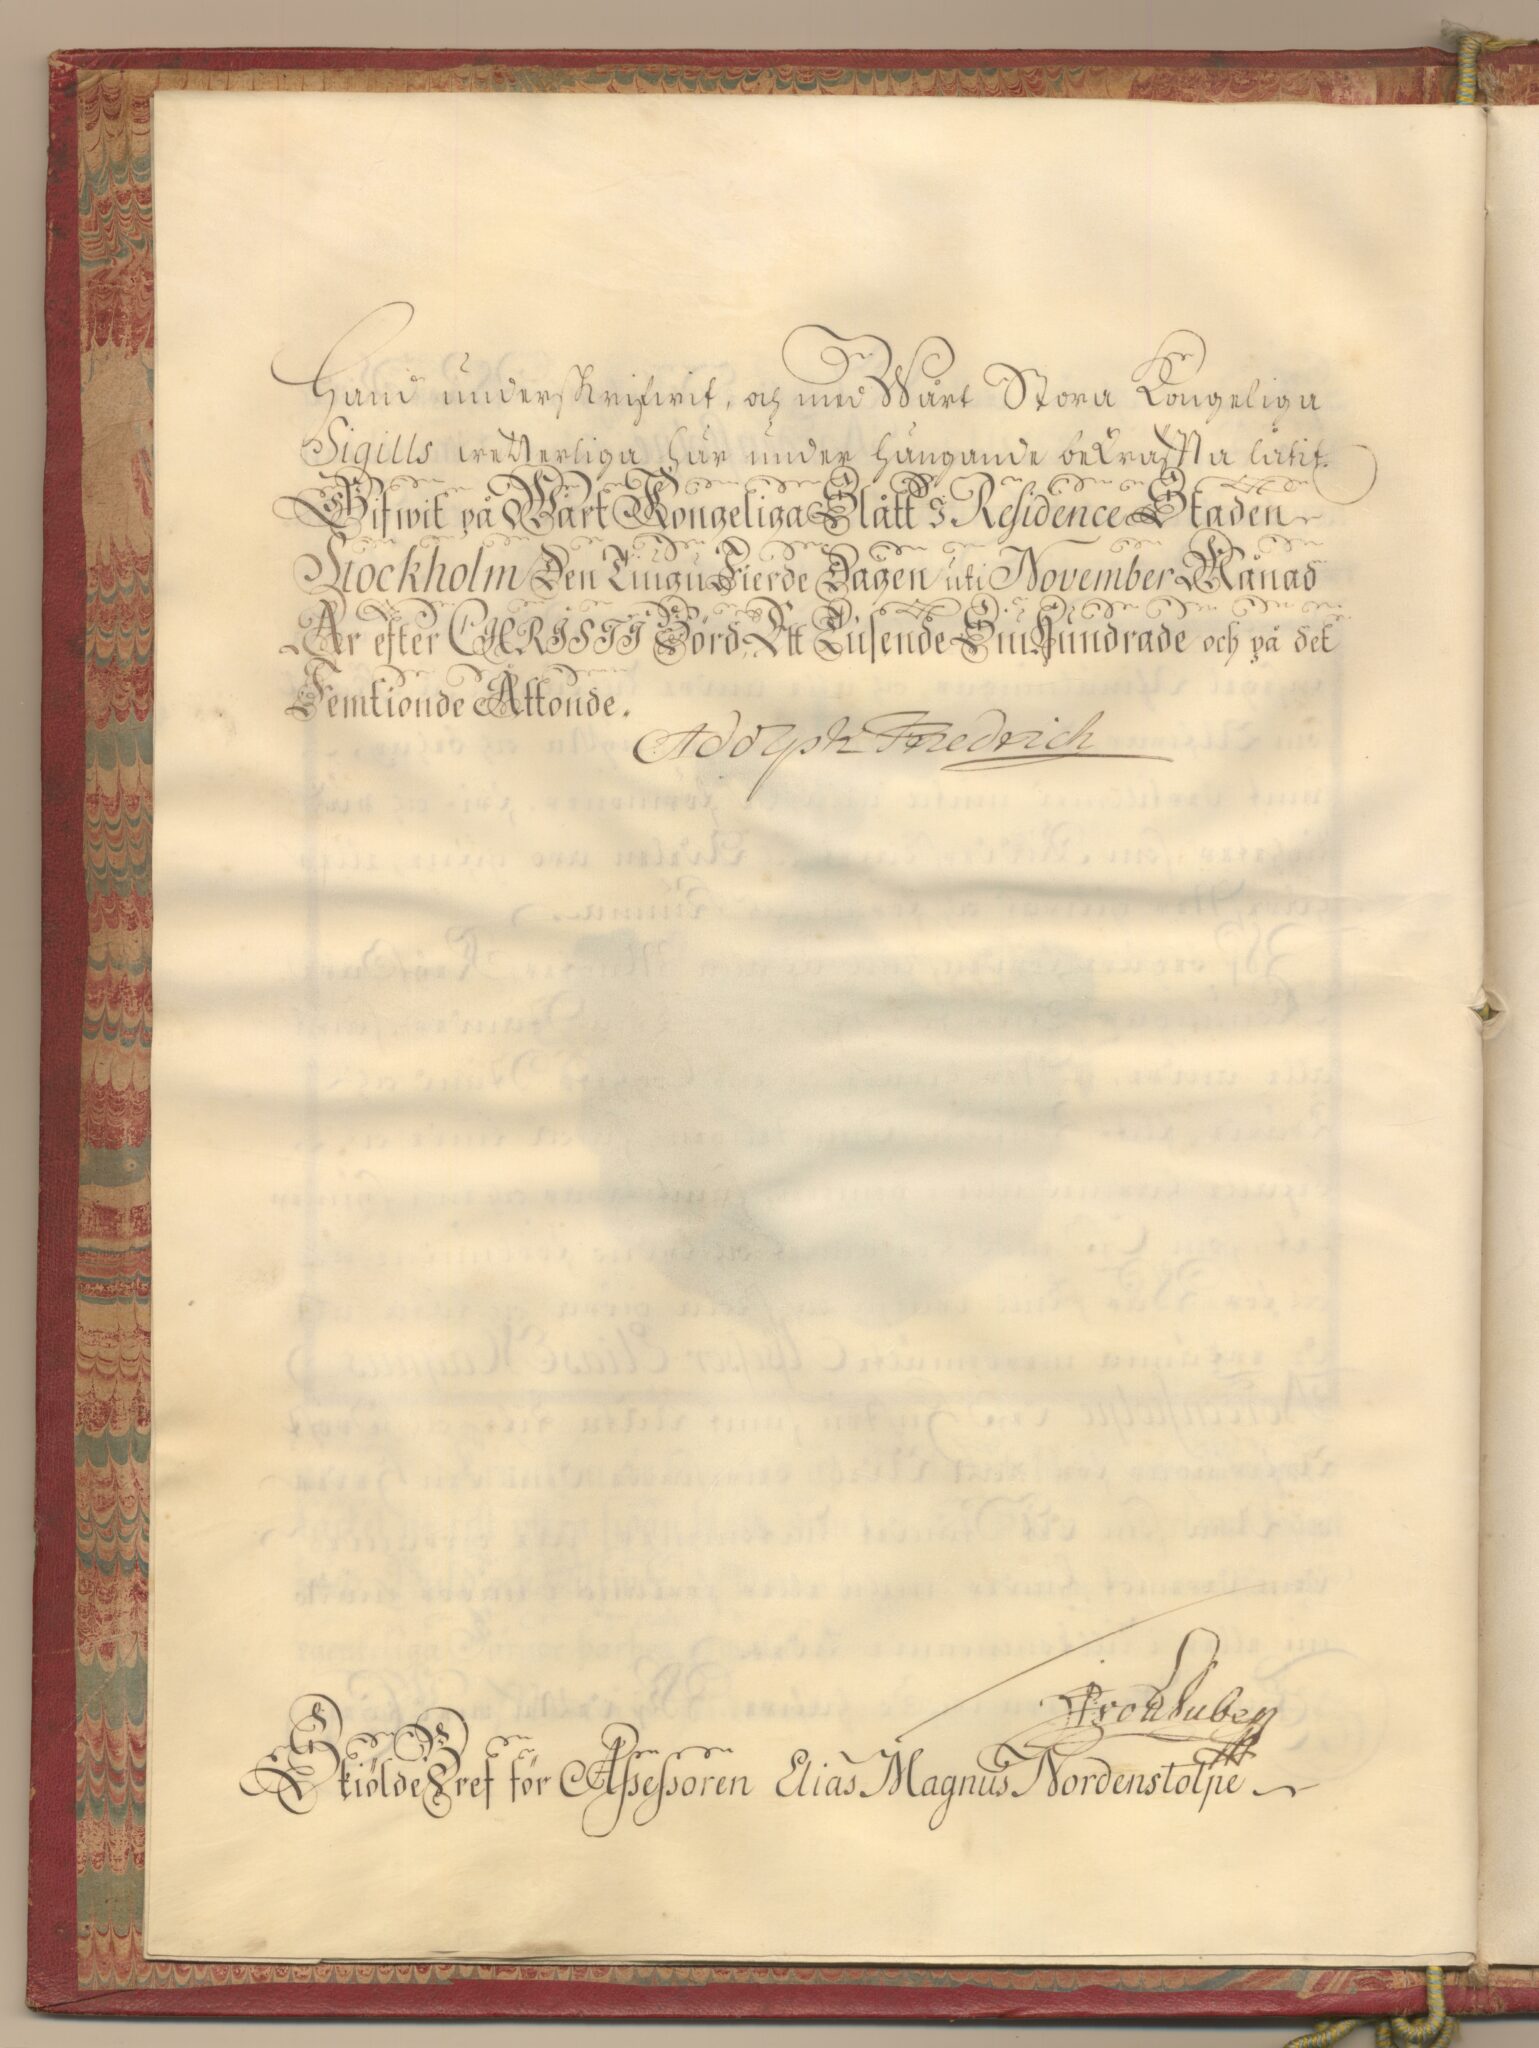 Hand underskrifwit, och med Wårt Stora Kongeliga
Sigills wetterliga här under hängande bekräfta låtit.
Gifwit på Wårt Kongeliga Slått I Residence Staden
Stockholm Den Tiugu Fierde Dagen uti November Månad
År efter CHRISTI Börd, Ett Tusende Siu Hundrade och på det
Femtionde Åttonde.
Adolph Friedrich
Skiölde Bref för Assessoren Elias Magnus Nordenstolpe